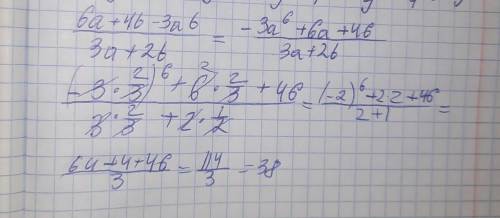 (6a + 4б - 3аб)/(3a + 2б) = (-3a⁶ + 6a + 4б)/(3a + 2б)
((-3 · 2/3)⁶ + 6² · 2/3 + 46)/(3 · 2/3 + 2 · 1/2) = ((-2)⁶ + 2·2 + 46)/(2 + 1) =
(64 + 4 + 46)/3 = 114/3 = 38